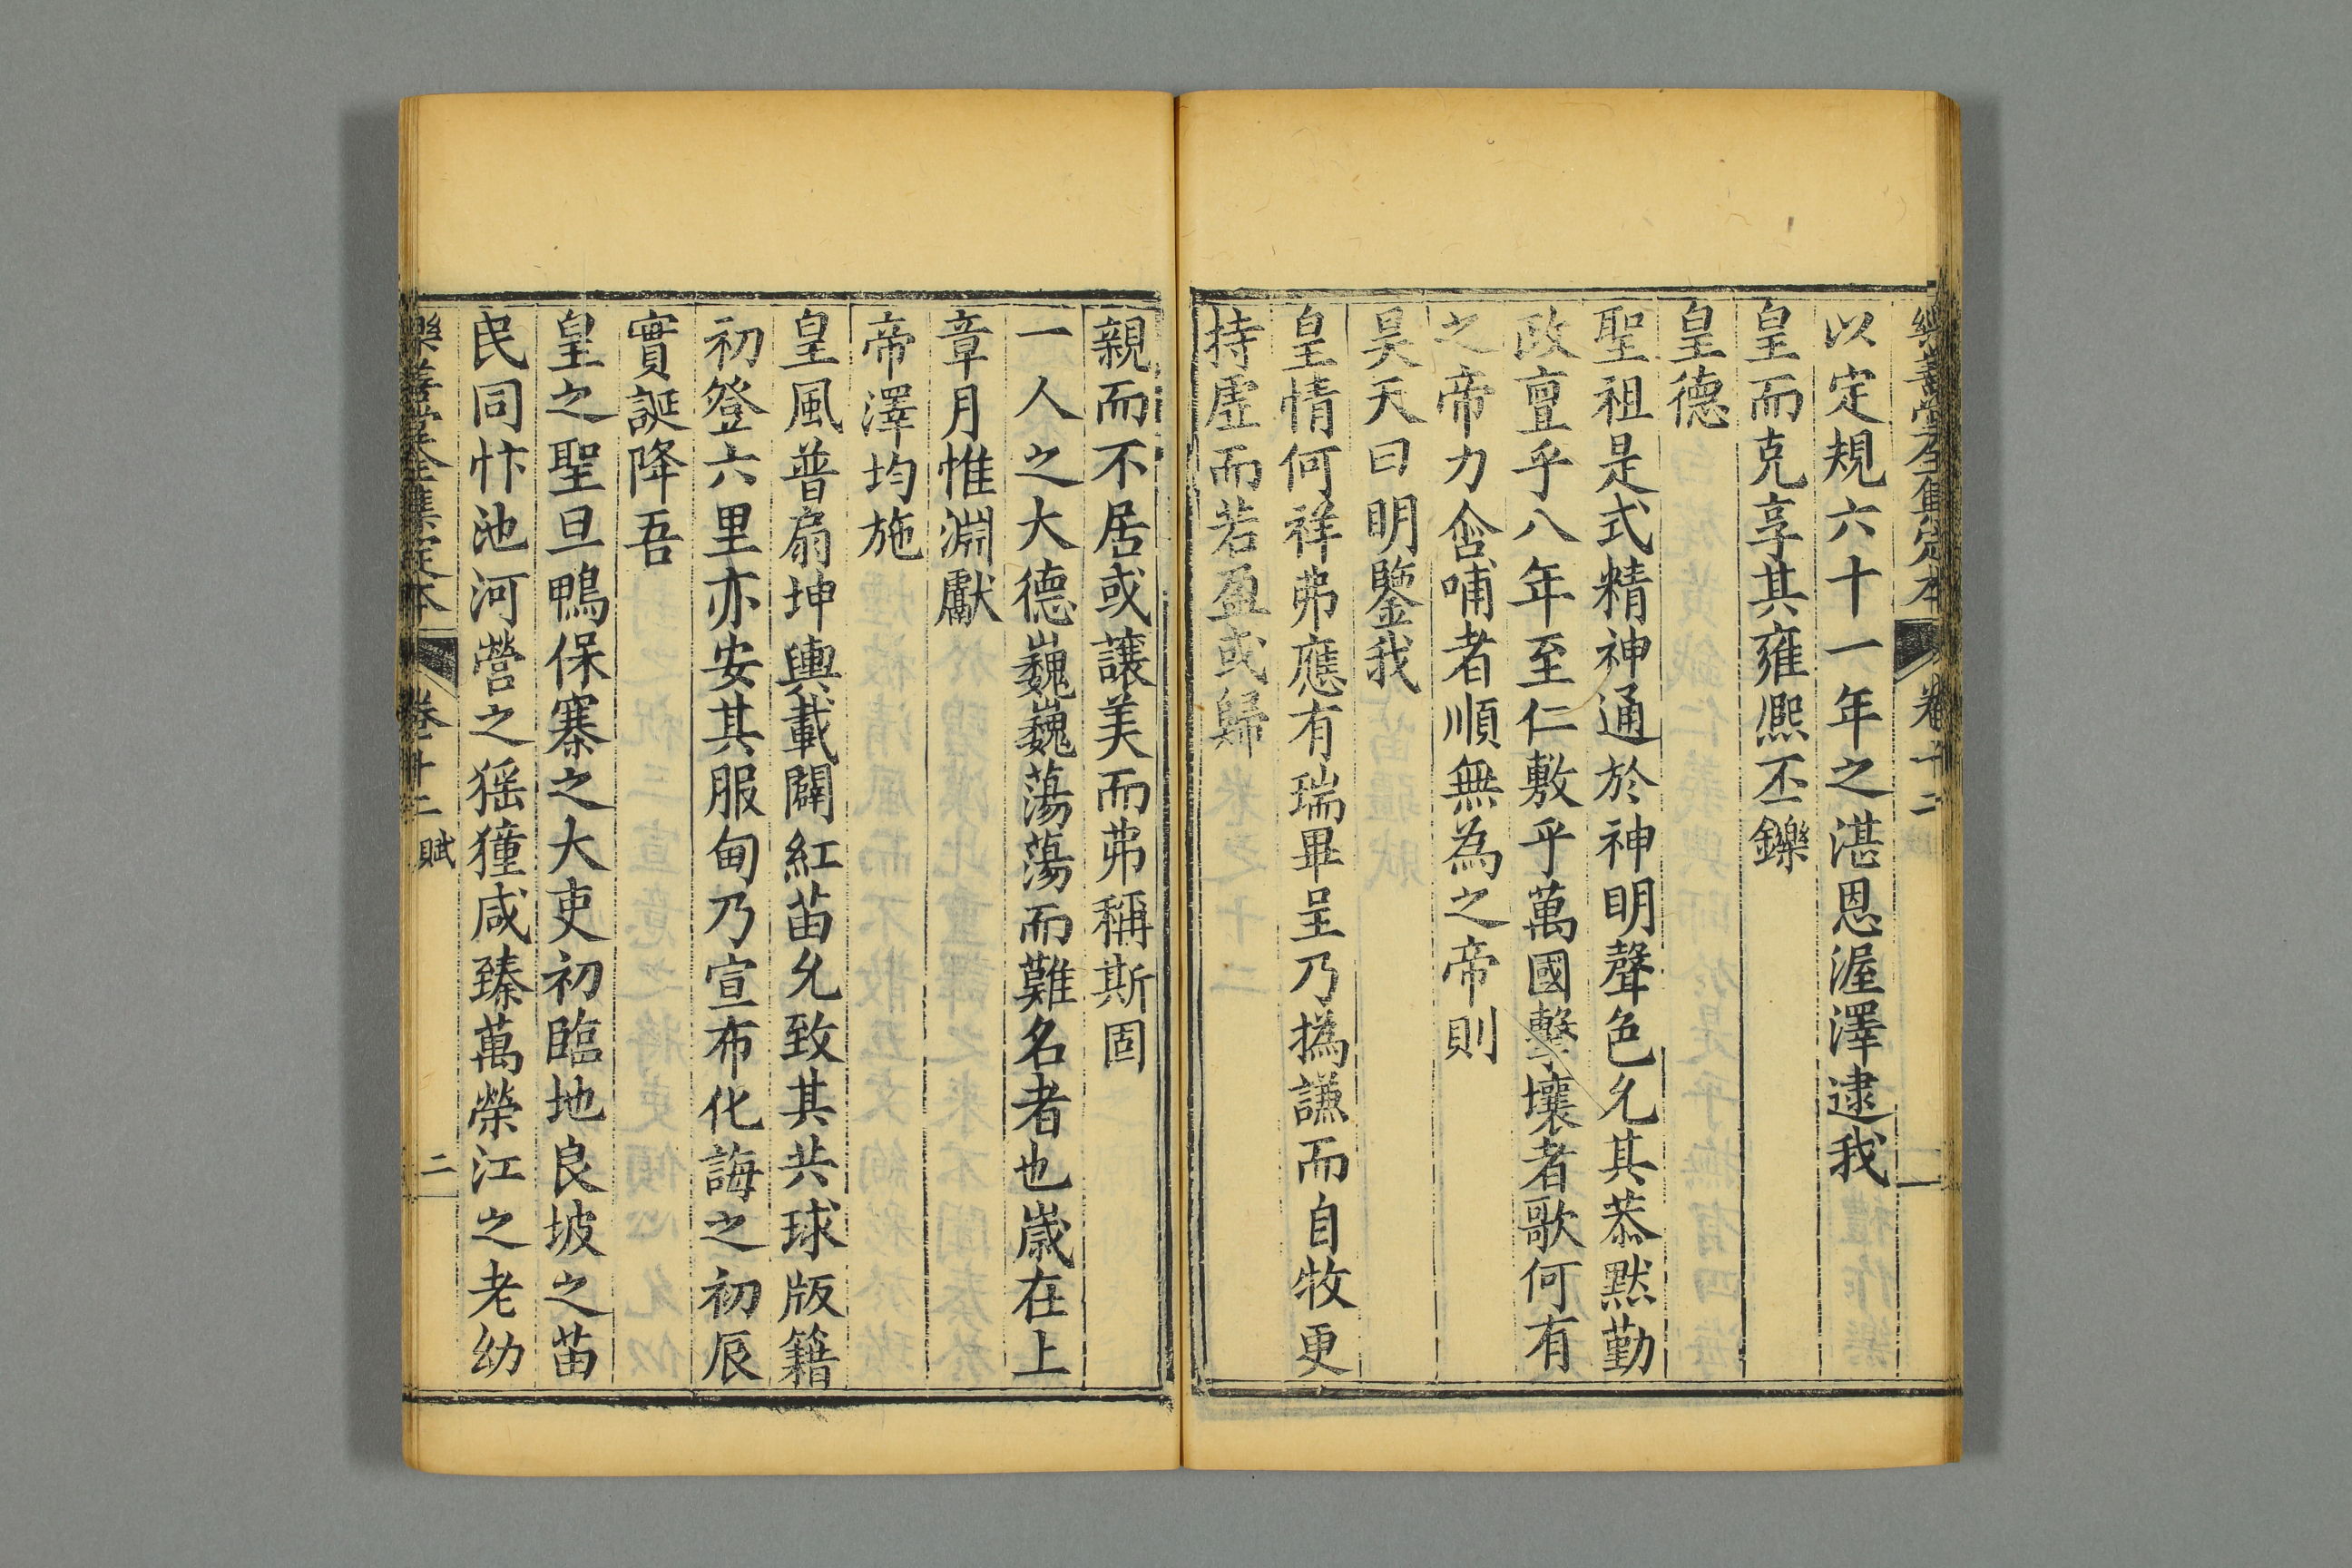 樂善堂全集定本
卷十二
一
以定規六十一年之湛恩渥澤逮我
皇而克享其雍熈丕鑠
皇德
聖祖是式精神通於神明聲色允其恭默勤
政亶乎八年至仁敷乎萬國擊壤者歌何有
之帝力含哺者順無為之帝則
昊天曰明鑒我
皇情何祥弗應有瑞畢呈乃撝謙而自牧更
持虛而若盈或歸
親而不居或讓美而弗稱斯固
一人之大德巍巍蕩蕩而難名者也嵗在上
章月惟淵獻
帝澤均施
皇風普扇坤輿載闢紅苗允致其共球版籍
初登六里亦安其服甸乃宣布化誨之初辰
實誕降吾
皇之聖旦鴨保寨之大吏初臨地良坡之苗
民同忭池河營之猺獞咸臻萬榮江之老幼
樂善堂全集定本
卷十二 賦
二